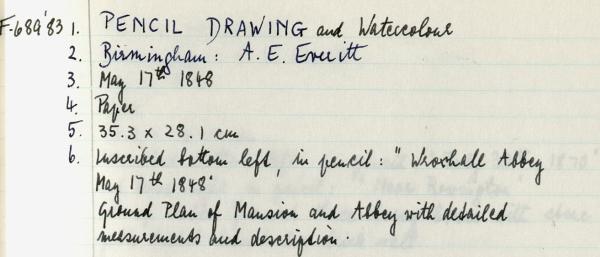 F-689'83 1. PENCIL DRAWING and Watercolour
2. Birmingham: A. E. Everitt
3. May 17th 1848
4. Paper
5. 35.3 x 28.1 cm
6. Inscribed bottom left, in pencil: "Wroxhall Abbey
May 17th 1848"
Ground Plan of Mansion and Abbey with detailed
measurements and description.